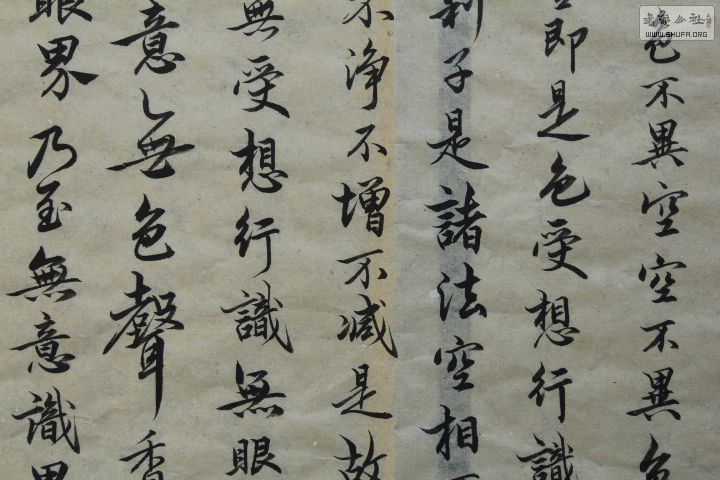 色不異空空不異色
即是色受想行識
利子是諸法空相
不淨不增不減是故
無受想行識無眼
意無色聲香
眼界乃至無意識界
書法公社
WWW.SHUFA.ORG